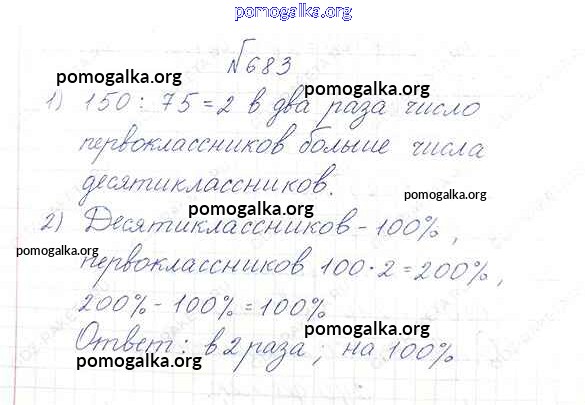 pomogalka.org
№683
pomogalka.org
pomogalka.org
1) 150 : 75 = 2 в два раза число
первоклассников больше числа
десятиклассников.
pomogalka.org
pomogalka.org
2) Десятиклассников - 100%,
pomogalka.org
первоклассников 100·2 = 200%,
200% - 100% = 100%
pomogalka.org
Ответ: в 2 раза; на 100%
pomogalka.org